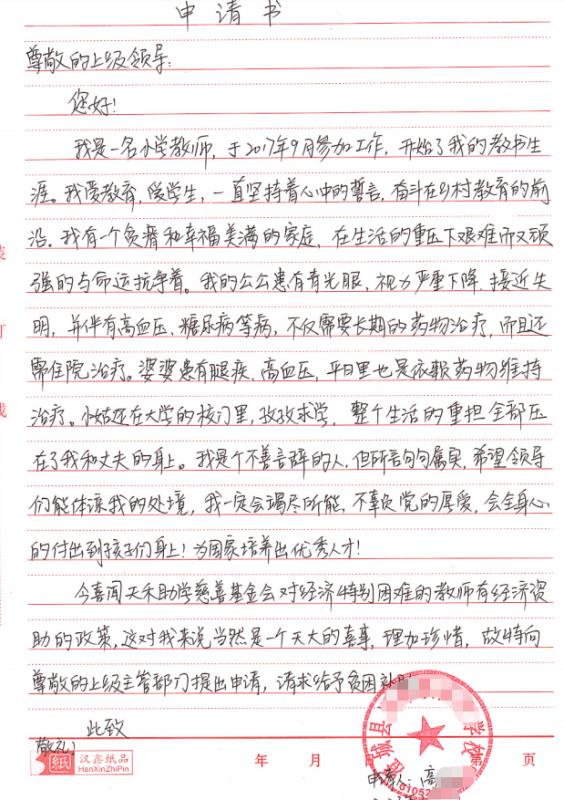 申请书
尊敬的上级领导:
您好!
我是一名小学教师,于2017年9月参加工作,开始了我的教书生
涯。我爱教育,爱学生,一直坚持着心中的誓言,奋斗在乡村教育的前
沿。我有一个负背和幸福美满的家庭,在生活的重压下艰难而又顽
强的与命运抗争着。我的公公患有青光眼,视力严重下降,接近失
明,并伴有高血压、糖尿病等病,不仅需要长期的药物治疗,而且还
需住院治疗。婆婆患有腿疾,高血压,平日里也是依靠药物维持
治疗。小姑还在大学的校门里,孜孜求学,整个生活的重担全部压
在了我和丈夫的身上。我是个不善言辞的人,但所言句句属实,希望领导
们能体谅我的处境,我一定会竭尽所能,不辜负党的厚爱,会全身心
的付出到孩子们身上!为国家培养出优秀人才!
今喜闻天禾助学慈善基金会对经济特别困难的教师有经济资
助的政策,这对我来说当然是一个天大的喜事,理加珍惜,故特向
尊敬的上级主管部门提出申请,请求给予贫困补
此致
敬礼!
装
订
线
汉鑫纸品
HanXinZhiPin
年 月
第 页
县
学校
申请人:高
6105